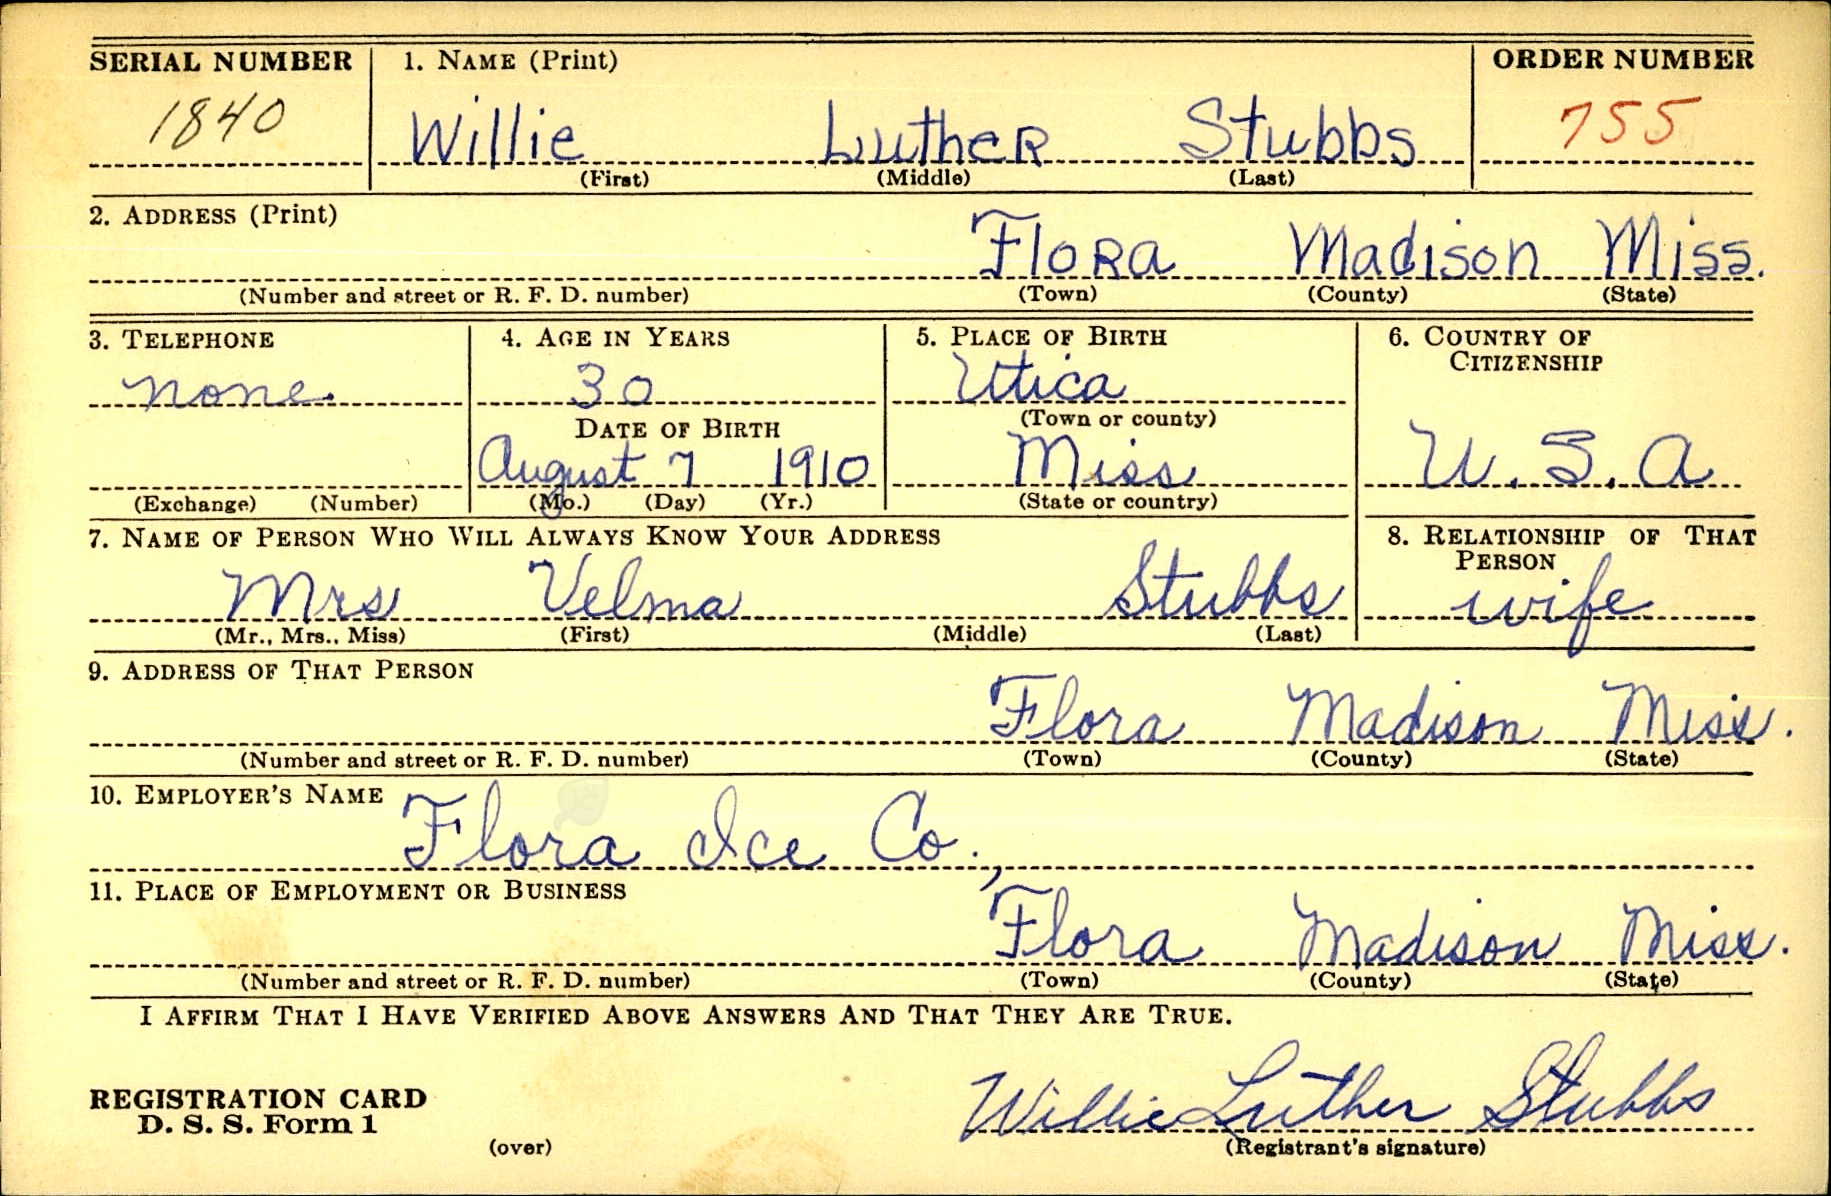 SERIAL NUMBER 1. NAME (Print) ORDER NUMBER
1840 Willie Luther Stubbs 755
(First) (Middle) (Last)
2. ADDRESS (Print)
Flora Madison Miss.
(Number and street or R. F. D. number) (Town) (County) (State)
3. TELEPHONE 4. AGE IN YEARS 5. PLACE OF BIRTH 6. COUNTRY OF CITIZENSHIP
none. 30 Utica
DATE OF BIRTH (Town or county)
August 7 1910 Miss U.S.A
(Exchange) (Number) (Mo.) (Day) (Yr.) (State or country)
7. NAME OF PERSON WHO WILL ALWAYS KNOW YOUR ADDRESS 8. RELATIONSHIP OF THAT PERSON
Mrs Velma Stubbs wife
(Mr., Mrs., Miss) (First) (Middle) (Last)
9. ADDRESS OF THAT PERSON
Flora Madison Miss.
(Number and street or R. F. D. number) (Town) (County) (State)
10. EMPLOYER'S NAME
Flora Ice Co.,
11. PLACE OF EMPLOYMENT OR BUSINESS
Flora Madison Miss.
(Number and street or R. F. D. number) (Town) (County) (State)
I AFFIRM THAT I HAVE VERIFIED ABOVE ANSWERS AND THAT THEY ARE TRUE.
REGISTRATION CARD
D. S. S. Form 1 Willie Luther Stubbs
(over) (Registrant's signature)